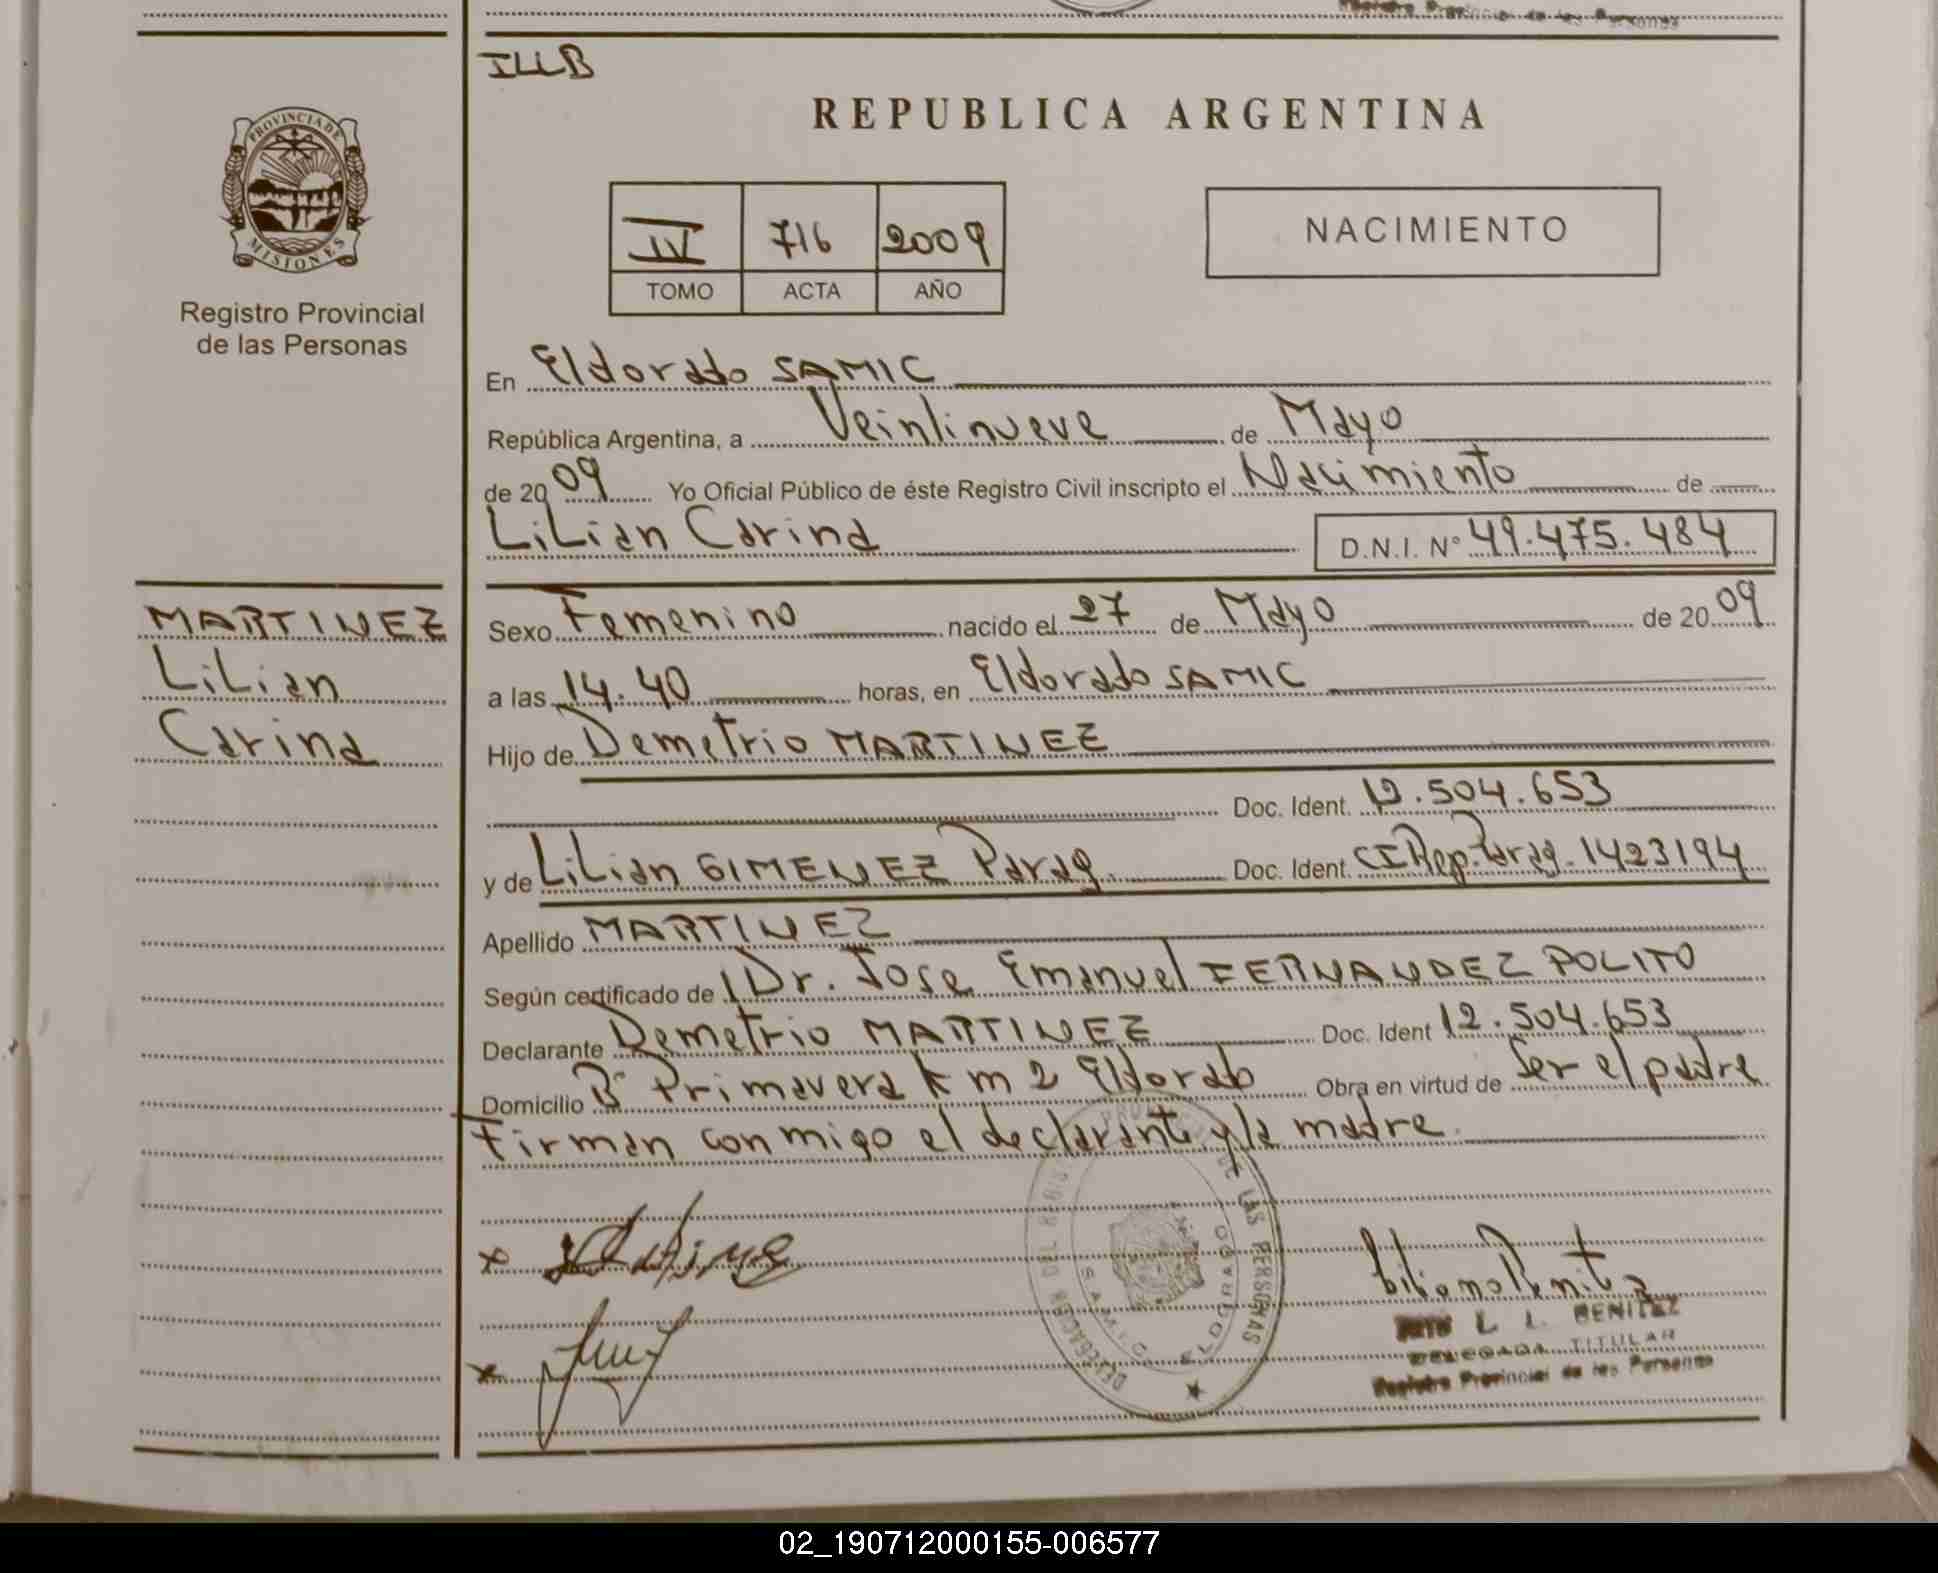 Registro Provincial de las Personas
ILLB
REPUBLICA ARGENTINA
PROVINCIA DE
MISIONES
Registro Provincial
de las Personas
IV 716 2009
TOMO ACTA AÑO
NACIMIENTO
En Eldorado SAMIC
República Argentina, a Veintinueve de Mayo
de 2009 Yo Oficial Público de éste Registro Civil inscripto el Nacimiento de
Lilian Carina D.N.I. N° 49.475.484
MARTINEZ
Lilian
Carina
Sexo Femenino nacido el 27 de Mayo de 2009
a las 14.40 horas, en Eldorado SAMIC
Hijo de Demetrio MARTINEZ
Doc. Ident. 12.504.653
y de Lilian GIMENEZ Parag. Doc. Ident. CI Rep. Parag. 1423194
Apellido MARTINEZ
Según certificado de Dr. Jose Emanuel FERNANDEZ POLITO
Declarante Demetrio MARTINEZ Doc. Ident 12.504.653
Domicilio B° Primavera km 2 Eldorado Obra en virtud de Ser el padre
Firman conmigo el declarante y la madre.
DELEGACION DEL REGISTRO PROVINCIAL DE LAS PERSONAS
SAMIC ELDORADO
L. I. BENITEZ
DELEGADA TITULAR
Registro Provincial de las Personas
02_190712000155-006577